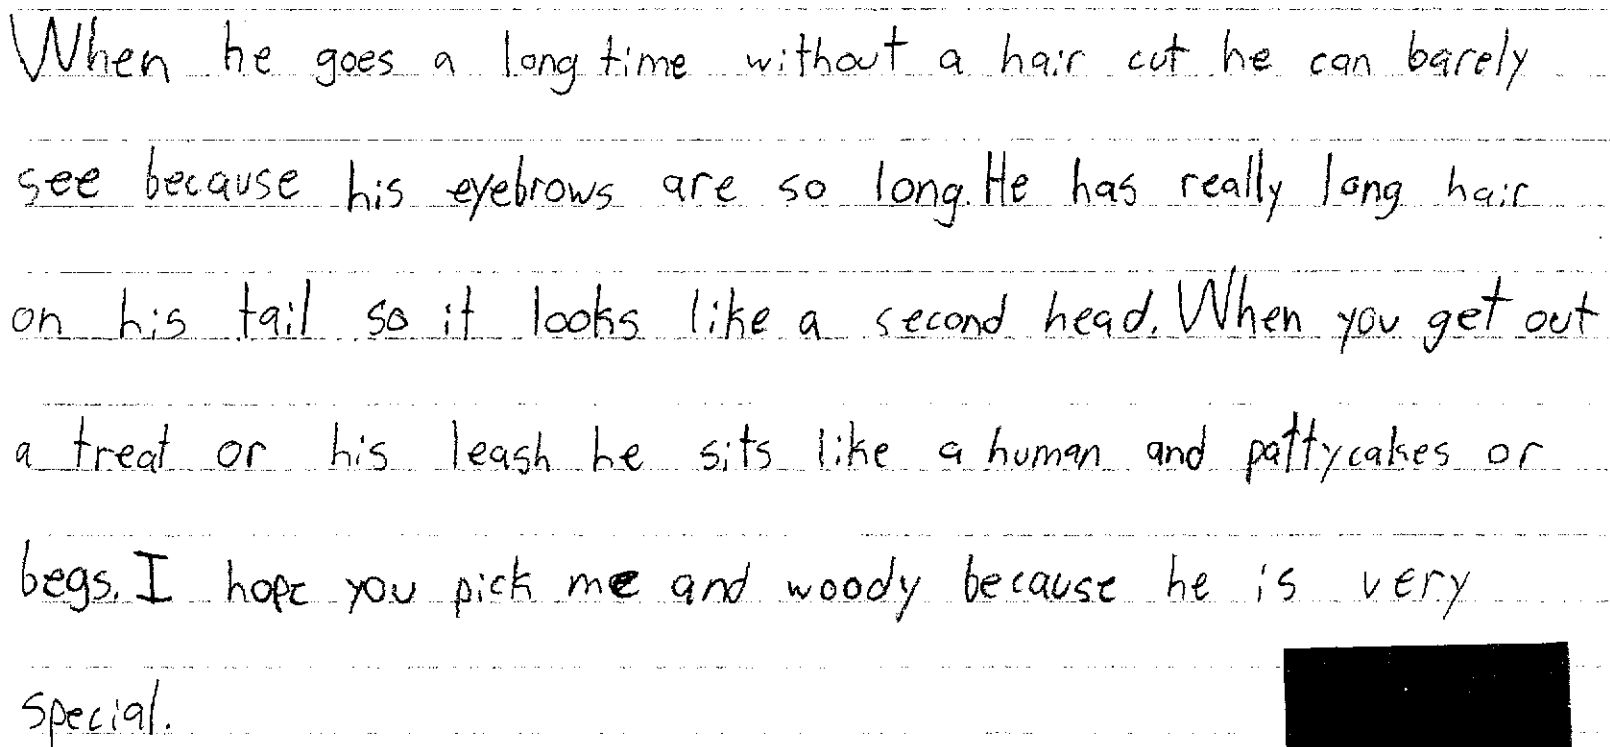 When he goes a long time without a hair cut he can barely
see because his eyebrows are so long. He has really long hair
on his tail so it looks like a second head. When you get out
a treat or his leash he sits like a human and pattycakes or
begs. I hope you pick me and woody because he is very
special.